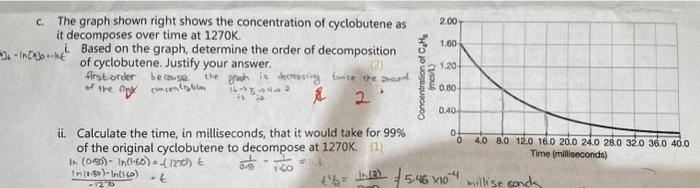 c. The graph shown right shows the concentration of cyclobutene as
it decomposes over time at 1270K.
i. Based on the graph, determine the order of decomposition
of cyclobutene. Justify your answer. (2)
first order because the graph is decreasing twice the amount
of the concentration 16→8→4→2
÷2 ÷2
2
ii. Calculate the time, in milliseconds, that it would take for 99%
of the original cyclobutene to decompose at 1270K. (1)
ln (0.80) - ln(1.60) = -(1270) t
ln(0.80)-ln(1.60) = t
-1270
t½ = ln(2)
5.46 x10⁻⁴ milliseconds
Concentration of C₄H₆
(mol/L)
2.00
1.60
1.20
0.80
0.40
0
0 4.0 8.0 12.0 16.0 20.0 24.0 28.0 32.0 36.0 40.0
Time (milliseconds)